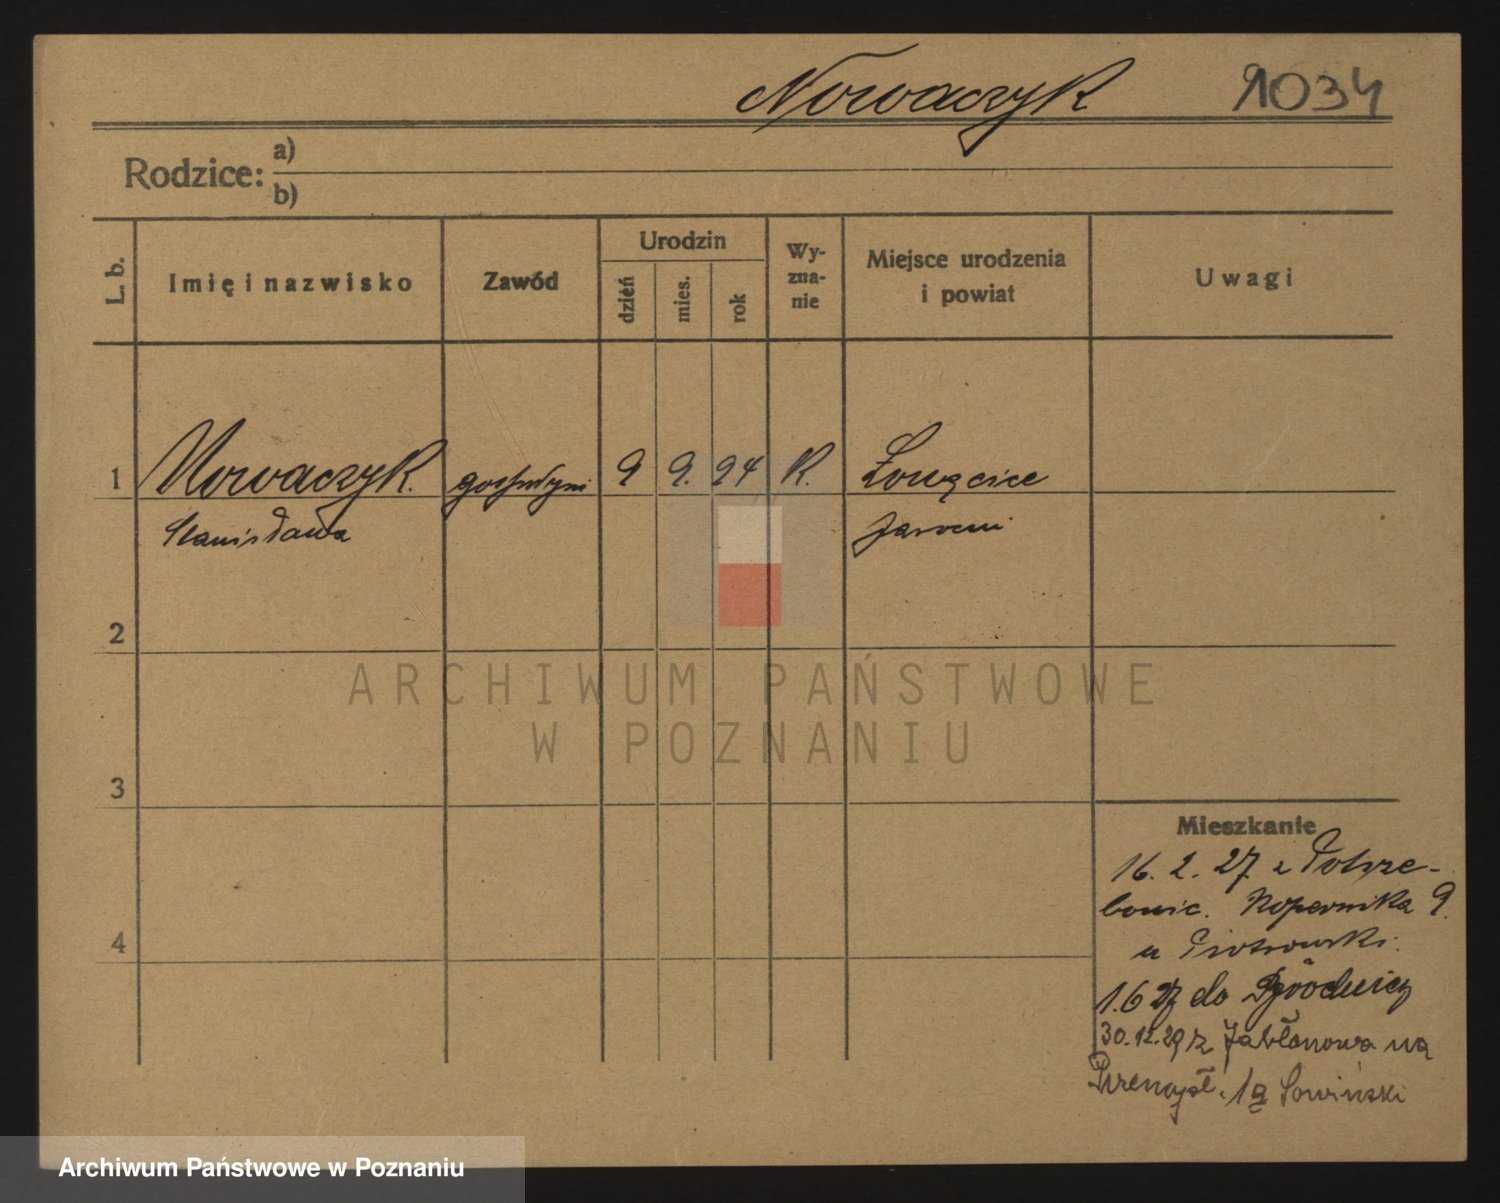 Nowaczyk 1034
Rodzice: a)
b)
L. b. Imię i nazwisko Zawód Urodzin dzień mies. rok Wy-
zna-
nie Miejsce urodzenia
i powiat Uwagi
1 Nowaczyk. 9 9. 94 K.
Stanisława
2
3
4
ARCHIWUM PAŃSTWOWE
W POZNANIU
Mieszkanie
16. 2. 27 z
Kopernika 9.
u Piotrowski.
1.6 27 do
30.12.29 z Jabłonowa na
Przemysł. 19 Sowiński
Archiwum Państwowe w Poznaniu